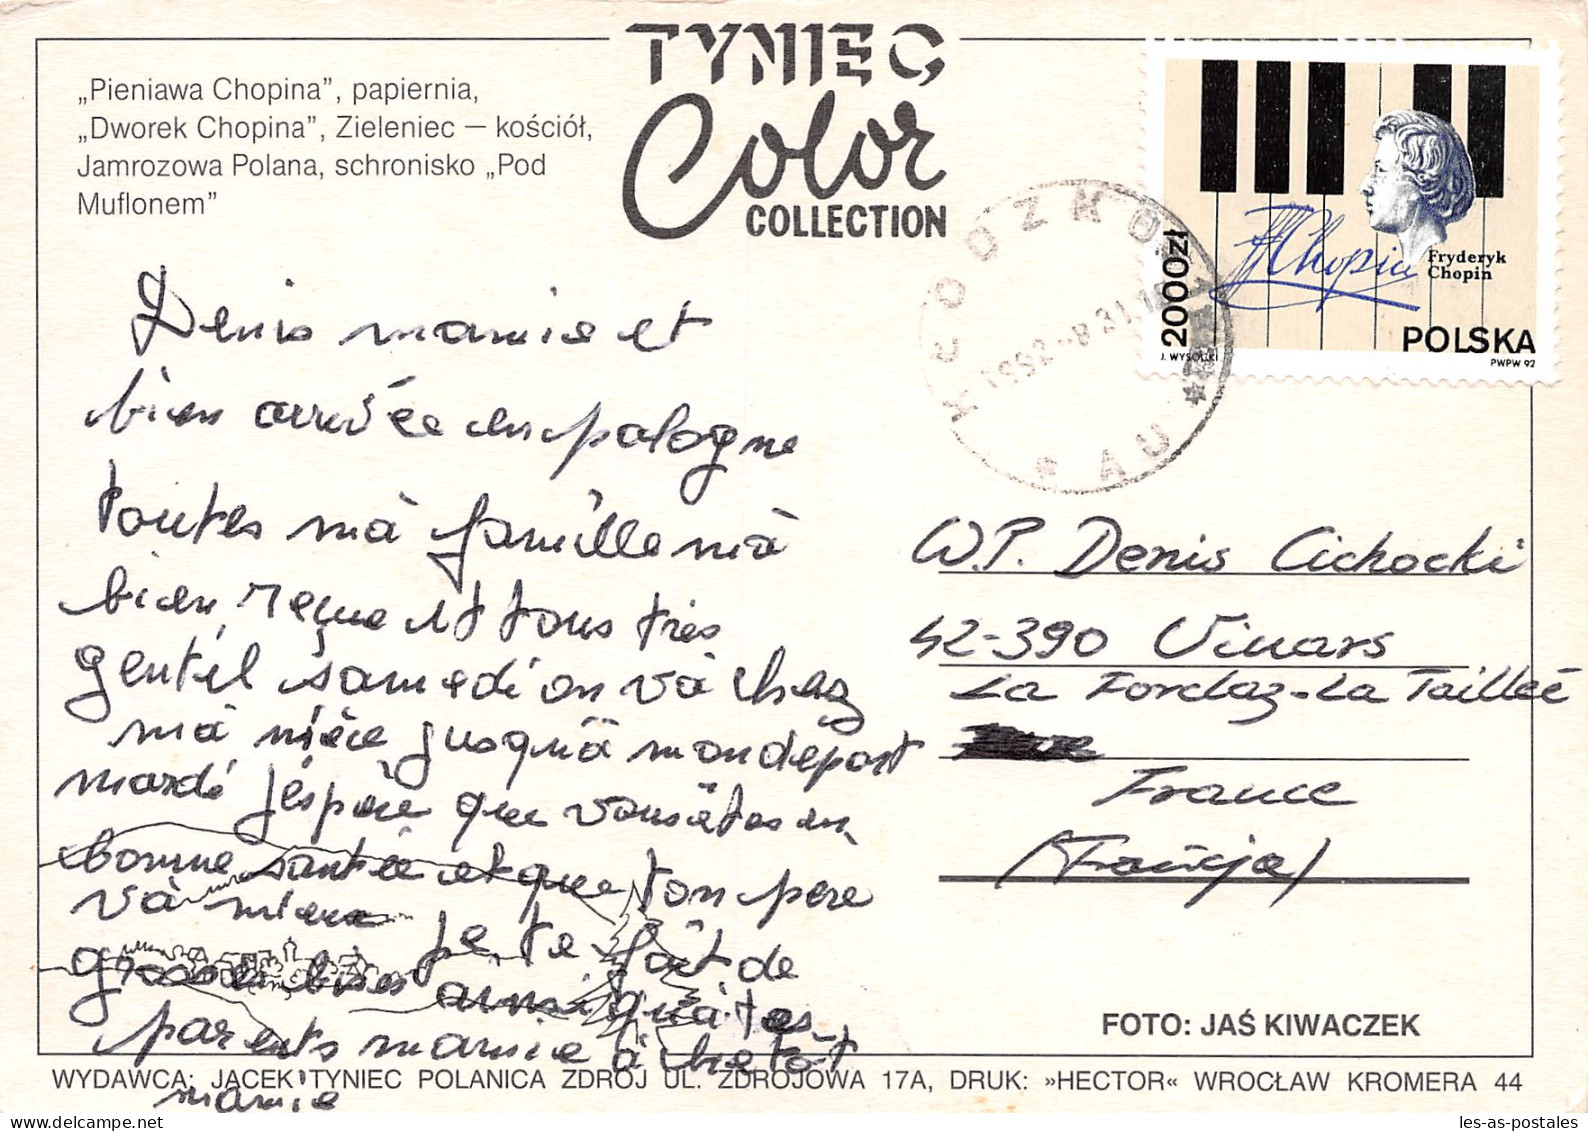 TYNIEC
Color
COLLECTION
„Pieniawa Chopina”, papiernia,
„Dworek Chopina”, Zieleniec – kościół,
Jamrozowa Polana, schronisko „Pod
Muflonem”
2000zł
Chopin
Fryderyk
Chopin
POLSKA
J. WYSOCKI
PWPW 92
KŁODZKO
1992-8.31.18
Denis mamie et
bien arrivée en pologne
toutes mà famille mà
bien reçue et tous très
gentil samedi on và chez
mà nièce jusquà mon depart
mardi j'éspère que vous êtes en
bonne santée et que ton père
và mieux je te fait de
grosses bises ainsi quà tes
parents mamie à bietôt
mamie
W.P. Denis Cichocki
42-390 Viuars
La Fordaz-La Tailleé
France
(Francja)
FOTO: JAŚ KIWACZEK
WYDAWCA: JACEK TYNIEC POLANICA ZDRÓJ UL. ZDROJOWA 17A, DRUK: »HECTOR« WROCŁAW KROMERA 44
les-as-postales